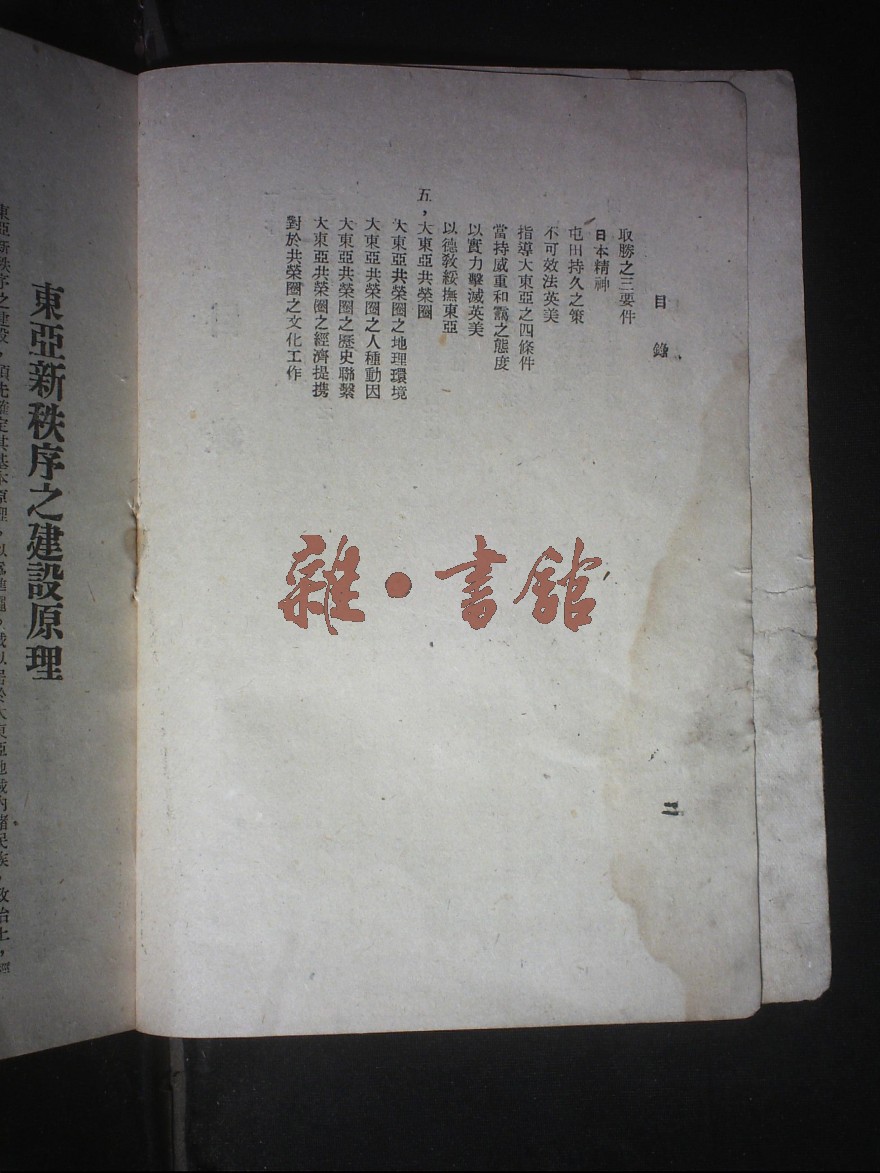 目錄
取勝之三要件
日本精神
屯田持久之策
不可效法英美
指導大東亞之四條件
當持威重和靄之態度
以實力擊滅英美
以德教綏撫東亞
五，大東亞共榮圈
大東亞共榮圈之地理環境
大東亞共榮圈之人種動因
大東亞共榮圈之歷史聯繫
大東亞共榮圈之經濟提携
對於共榮圈之文化工作
二
雜·書館
東亞新秩序之建設原理
東亞新秩序之建設，須先確定其基本原理，以爲準繩，誠以居於大東亞地域內諸民族，政治上，